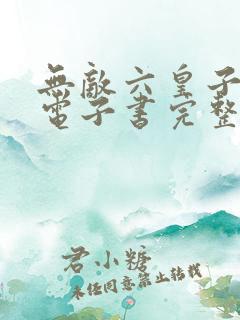 無敵六皇子
電子書完整
君小糖
未经同意禁止转载